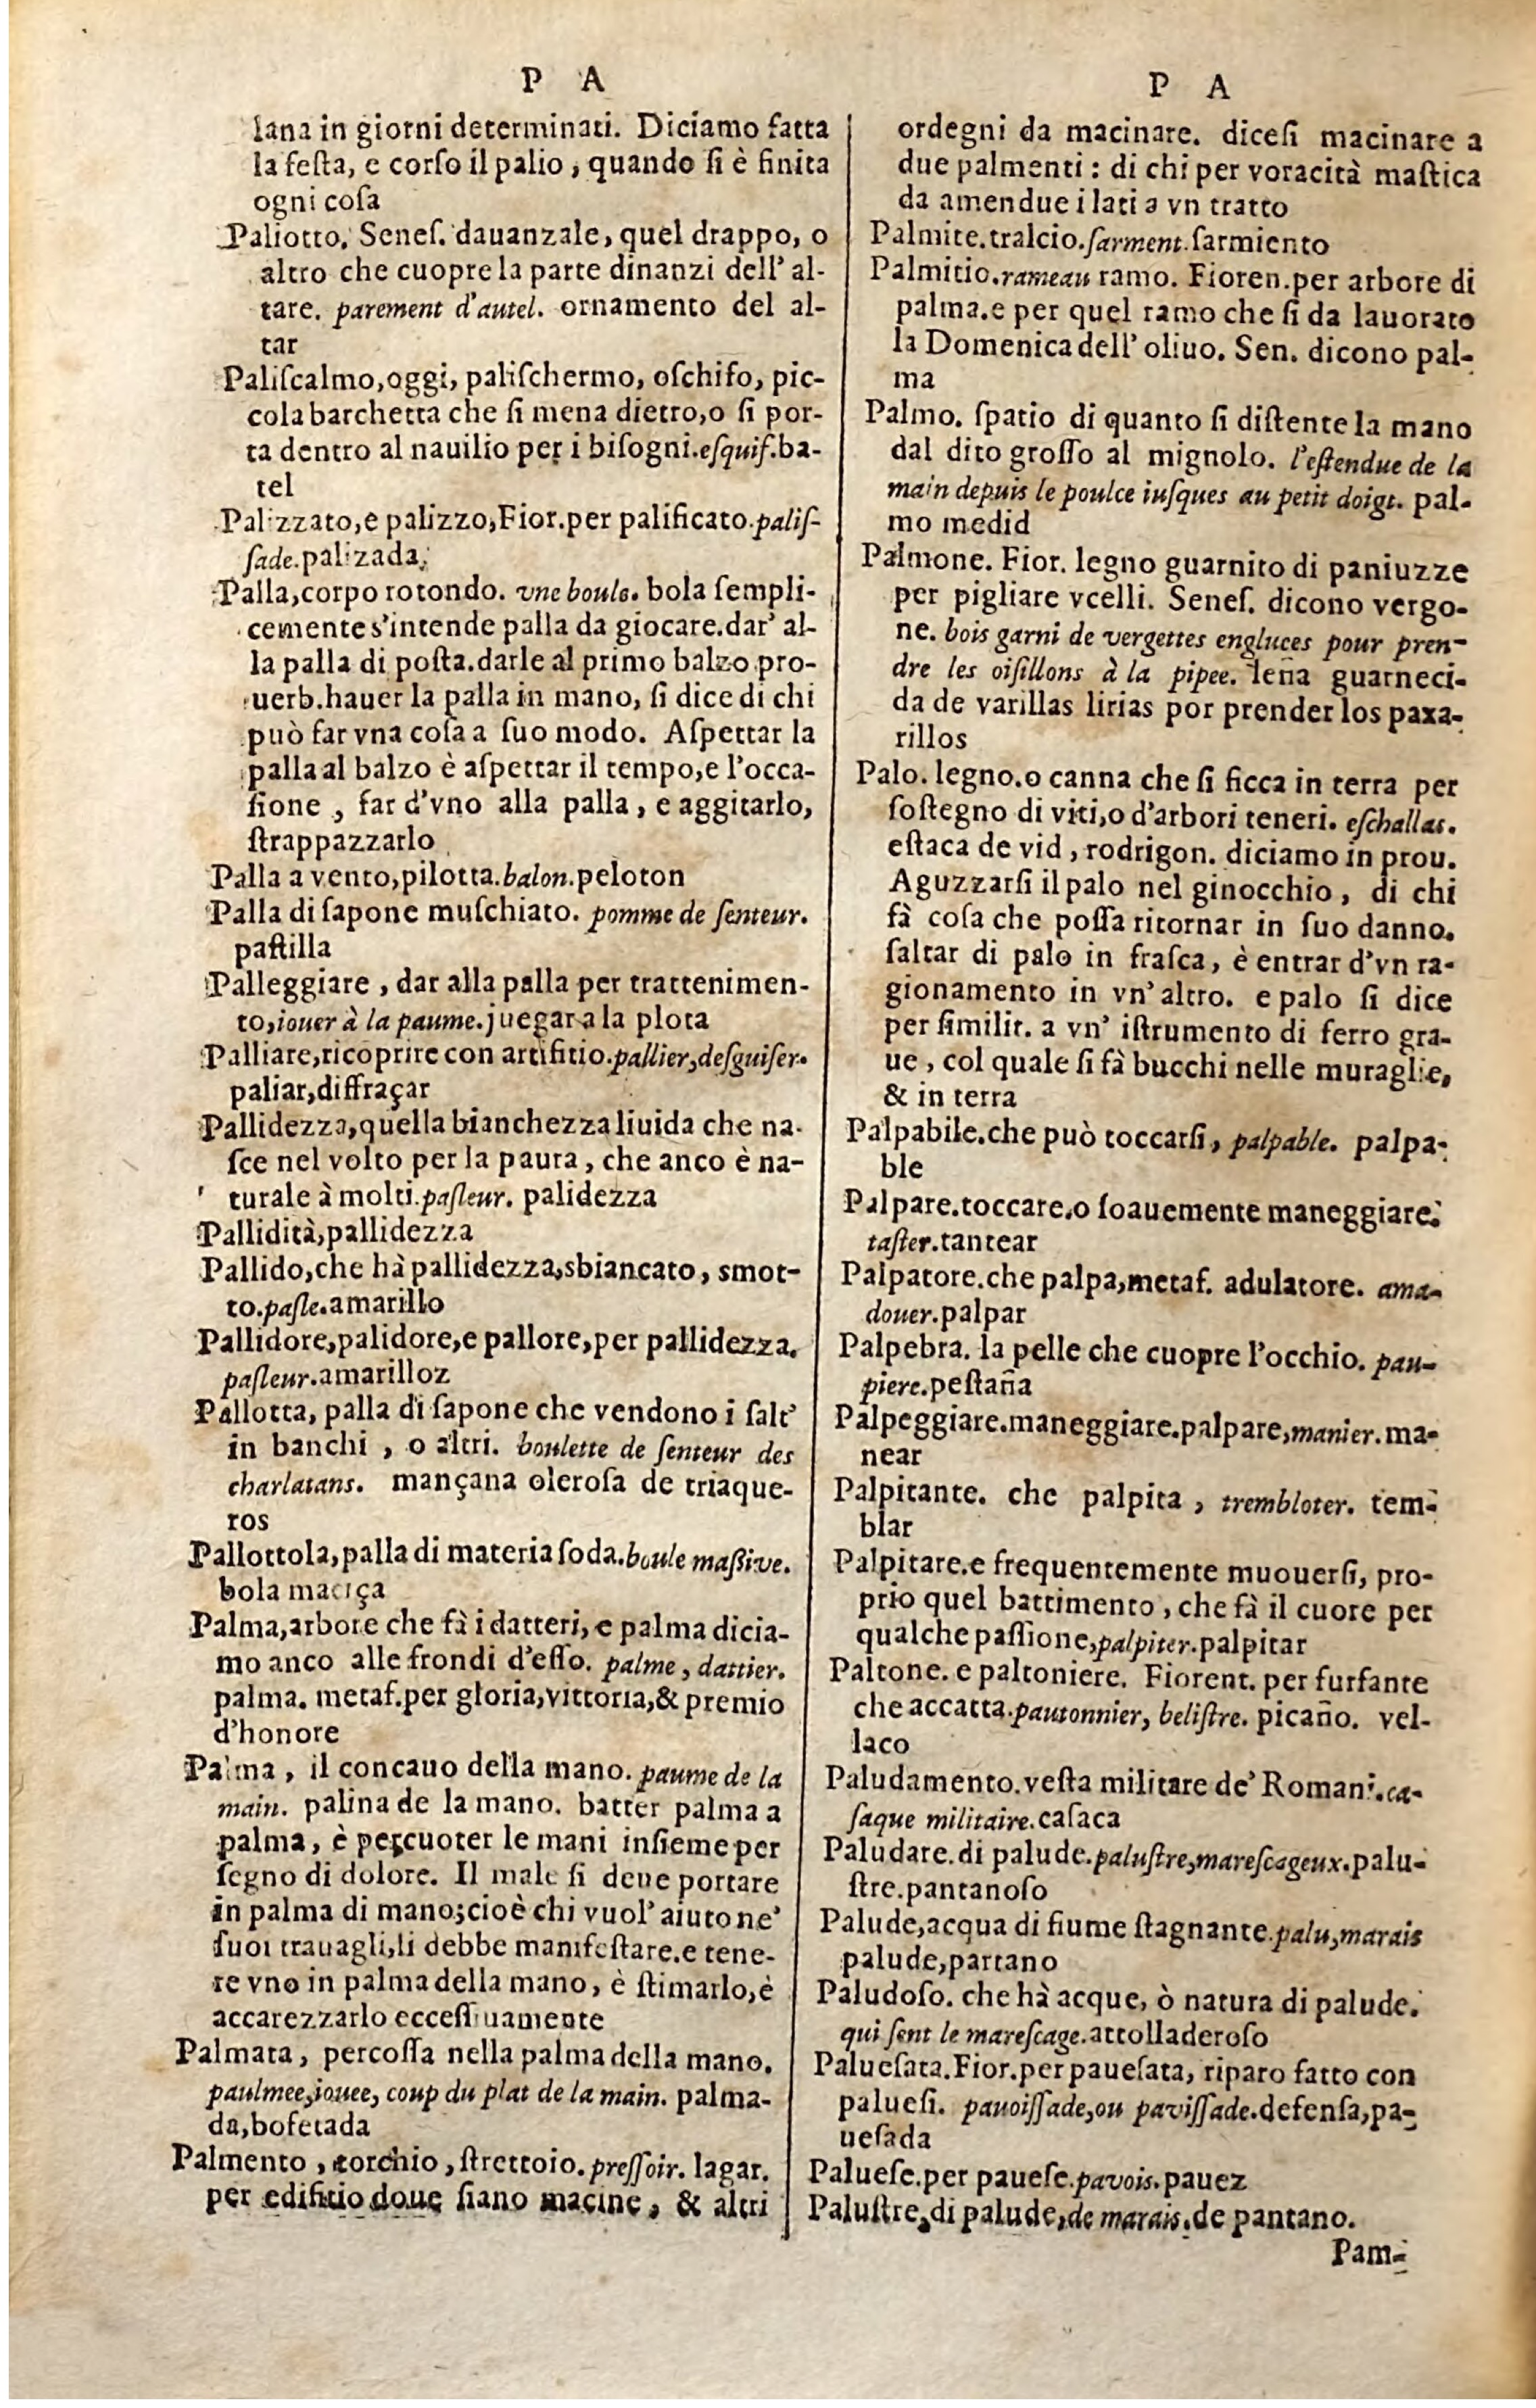 P A
lana in giorni determinati. Diciamo fatta
la feſta, e corſo il palio, quando ſi è finita
ogni coſa
Paliotto. Seneſ. dauanzale, quel drappo, o
altro che cuopre la parte dinanzi dell' al-
tare. parement d'autel. ornamento del al-
tar
Paliſcalmo, oggi, paliſchermo, oſchifo, pic-
cola barchetta che ſi mena dietro, o ſi por-
ta dentro al nauilio per i biſogni. eſquif. ba-
tel
Palizzato, e palizzo, Fior. per palificato. paliſ-
ſade. palizada.
Palla, corpo rotondo. vne boule. bola ſempli-
cemente s'intende palla da giocare. dar' al-
la palla di poſta. darle al primo balzo pro-
uerb. hauer la palla in mano, ſi dice di chi
può far vna coſa a ſuo modo. Aſpettar la
palla al balzo è aſpettar il tempo, e l'occa-
ſione, far d'vno alla palla, e aggitarlo,
ſtrappazzarlo
Palla a vento, pilotta. balon. peloton
Palla di ſapone muſchiato. pomme de ſenteur.
paſtilla
Palleggiare, dar alla palla per trattenimen-
to, iouer à la paume. juegar a la plota
Palliare, ricoprire con artifitio. pallier, deſguiſer.
paliar, diffraçar
Pallidezza, quella bianchezza liuida che na-
ſce nel volto per la paura, che anco è na-
turale à molti. paſleur. palidezza
Pallidità, pallidezza
Pallido, che hà pallidezza, sbiancato, smot-
to. paſle. amarillo
Pallidore, palidore, e pallore, per pallidezza.
paſleur. amarilloz
Pallotta, palla di ſapone che vendono i ſalt'
in banchi, o altri. boulette de ſenteur des
charlatans. mançana oleroſa de triaque-
ros
Pallottola, palla di materia ſoda. boule maſſive.
bola maciça
Palma, arbore che fà i datteri, e palma dicia-
mo anco alle frondi d'eſſo. palme, dattier.
palma. metaf. per gloria, vittoria, & premio
d'honore
Palma, il concauo della mano. paume de la
main. palma de la mano. batter palma a
palma, è percuoter le mani inſieme per
ſegno di dolore. Il male ſi deue portare
in palma di mano; cioè chi vuol' aiuto ne'
ſuoi trauagli, li debbe manifeſtare. e tene-
re vno in palma della mano, è ſtimarlo, è
accarezzarlo ecceſſiuamente
Palmata, percoſſa nella palma della mano.
paulmee, jouee, coup du plat de la main. palma-
da, bofetada
Palmento, torchio, ſtrettoio. preſſoir. lagar.
per edifitio doue ſiano macine, & altri
P A
ordegni da macinare. diceſi macinare a
due palmenti: di chi per voracità maſtica
da amendue i lati a vn tratto
Palmite. tralcio. ſarment. ſarmiento
Palmitio. rameau ramo. Fioren. per arbore di
palma. e per quel ramo che ſi da lauorato
la Domenica dell' oliuo. Sen. dicono pal-
ma
Palmo. ſpatio di quanto ſi diſtente la mano
dal dito groſſo al mignolo. l'eſtendue de la
main depuis le poulce iuſques au petit doigt. pal-
mo medid
Palmone. Fior. legno guarnito di paniuzze
per pigliare vcelli. Seneſ. dicono vergo-
ne. bois garni de vergettes engluces pour pren-
dre les oiſillons à la pipee. leña guarneci-
da de varillas lirias por prender los paxa-
rillos
Palo. legno. o canna che ſi ficca in terra per
ſoſtegno di viti, o d'arbori teneri. eſchallas.
eſtaca de vid, rodrigon. diciamo in prou.
Aguzzarſi il palo nel ginocchio, di chi
fà coſa che poſſa ritornar in ſuo danno.
ſaltar di palo in fraſca, è entrar d'vn ra-
gionamento in vn' altro. e palo ſi dice
per ſimilit. a vn' iſtrumento di ferro gra-
ue, col quale ſi fà bucchi nelle muraglie,
& in terra
Palpabile. che può toccarſi, palpable. palpa-
ble
Palpare. toccare. o ſoauemente maneggiare.
taſter. tantear
Palpatore. che palpa, metaf. adulatore. ama-
douer. palpar
Palpebra. la pelle che cuopre l'occhio. pau-
piere. peſtaña
Palpeggiare. maneggiare. palpare, manier. ma-
near
Palpitante. che palpita, trembloter. tem-
blar
Palpitare. e frequentemente muouerſi, pro-
prio quel battimento, che fà il cuore per
qualche paſſione, palpiter. palpitar
Paltone. e paltoniere. Fiorent. per furfante
che accatta. pautonnier, beliſtre. picaño. vel-
laco
Paludamento. veſta militare de' Romani. ca-
ſaque militaire. caſaca
Paludare. di palude. paluſtre, mareſcageux. palu-
ſtre. pantanoſo
Palude, acqua di fiume ſtagnante. palu, marais
palude, partano
Paludoſo. che hà acque, ò natura di palude.
qui ſent le mareſcage. attolladeroſo
Palueſata. Fior. per paueſata, riparo fatto con
palueſi. pauoiſſade, ou paviſſade. defenſa, pa-
ueſada
Palueſe. per paueſe. pavois. pauez
Paluſtre, di palude, de marais. de pantano.
Pam-